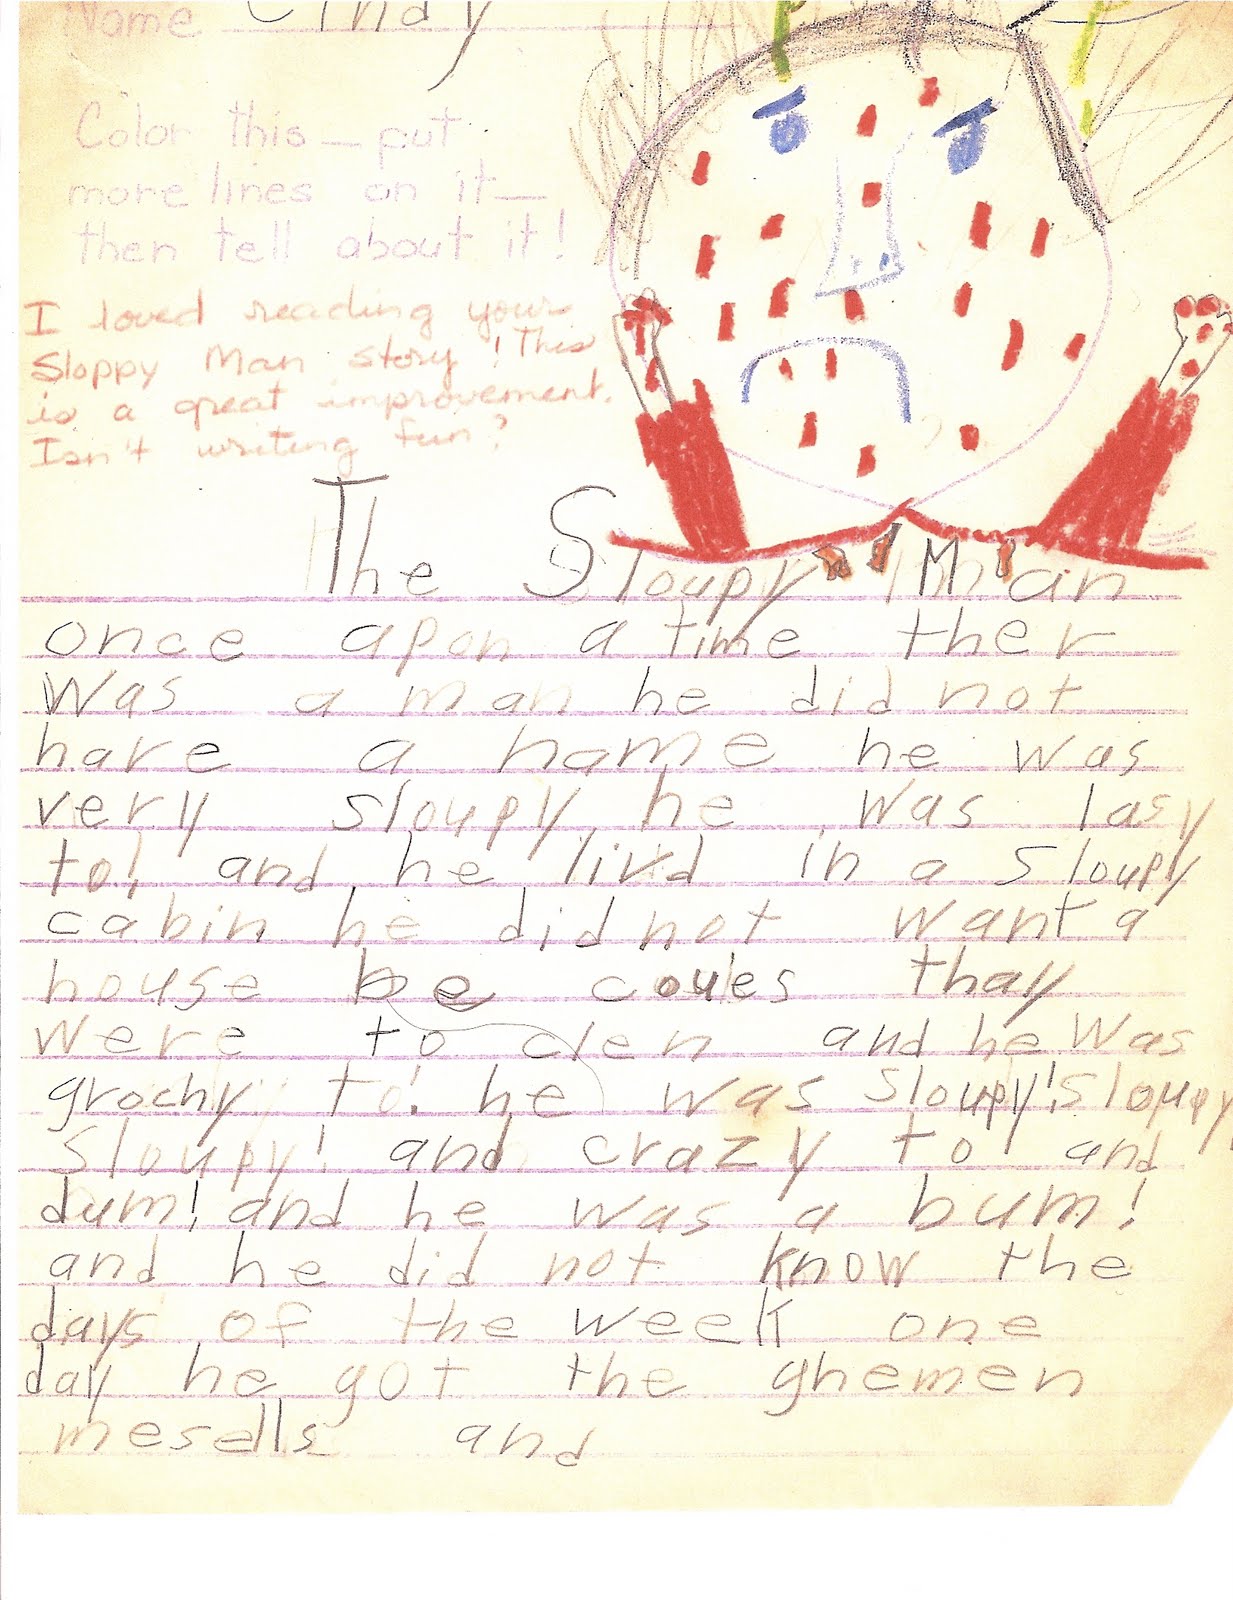 Name Cindy
Color this — put
more lines on it —
then tell about it!
I loved reading your
Sloppy Man story! This
is a great improvement.
Isn't writing fun?
The Sloupy Man
once apon a time ther
Was a man he did not
have a name he was
very sloupy he was lasy
to! and he livd in a Sloupy
cabin he did not want a
house be coues thay
were to clen and he Was
grochy to! he was Sloupy! Sloupy
Sloupy! and crazy to and
dum! and he was a bum!
and he did not know the
days of the week one
day he got the ghemen
mesells and